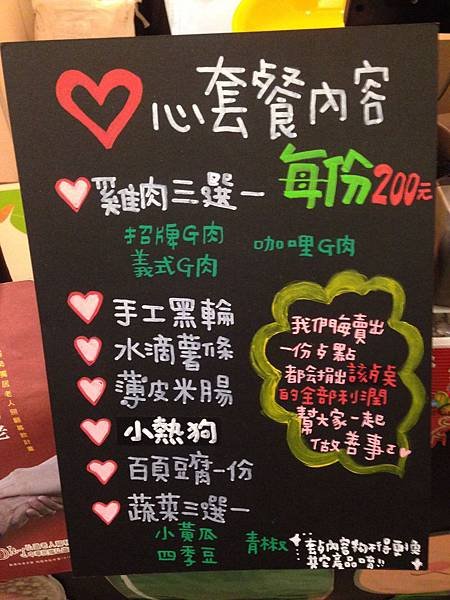 心套餐內容
每份200元
雞肉三選一
招牌G肉
咖哩G肉
義式G肉
手工黑輪
水滴薯條
薄皮米腸
小熱狗
百頁豆腐一份
蔬菜三選一
小黃瓜
青椒
四季豆
我們每賣出
一份餐點
都会捐出該餐
的全部利潤
幫大家一起
做善事
套餐內容物不得更換
其它產品唷!!